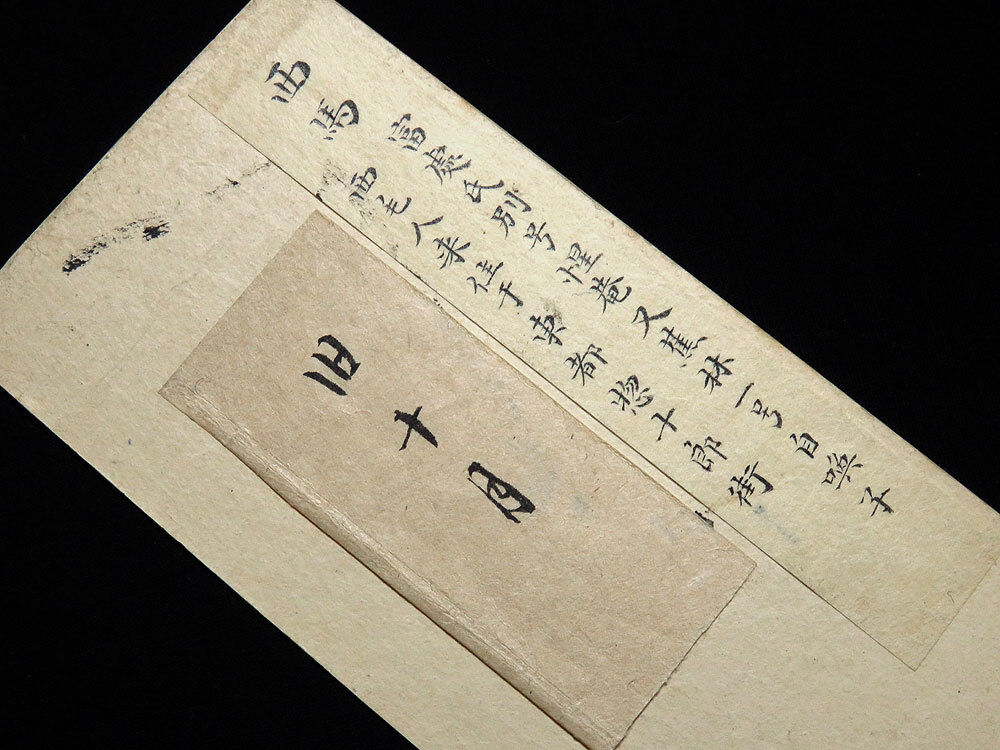 西馬
富處氏別号惺菴又蕉林一号自與子
西毛人来住于東都惣十郎街
旧十月